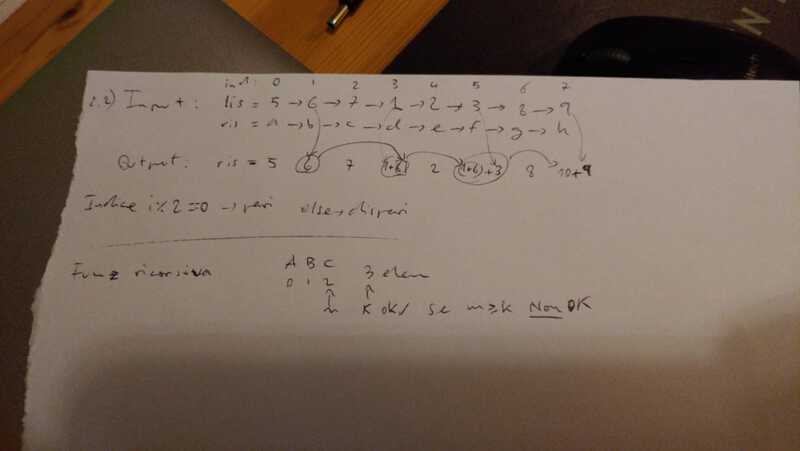 ind: 0 1 2 3 4 5 6 7
2.2) Input: lis = 5 → 6 → 7 → 1 → 2 → 3 → 8 → 9
ris = a → b → c → d → e → f → g → h
Output: ris = 5 6 7 1+6 2 (1+6)+3 8 10+9
Indice i%2=0 → pari else → dispari
Funz ricorsiva A B C 3 elem
0 1 2
n K ok/ se n≥k Non OK